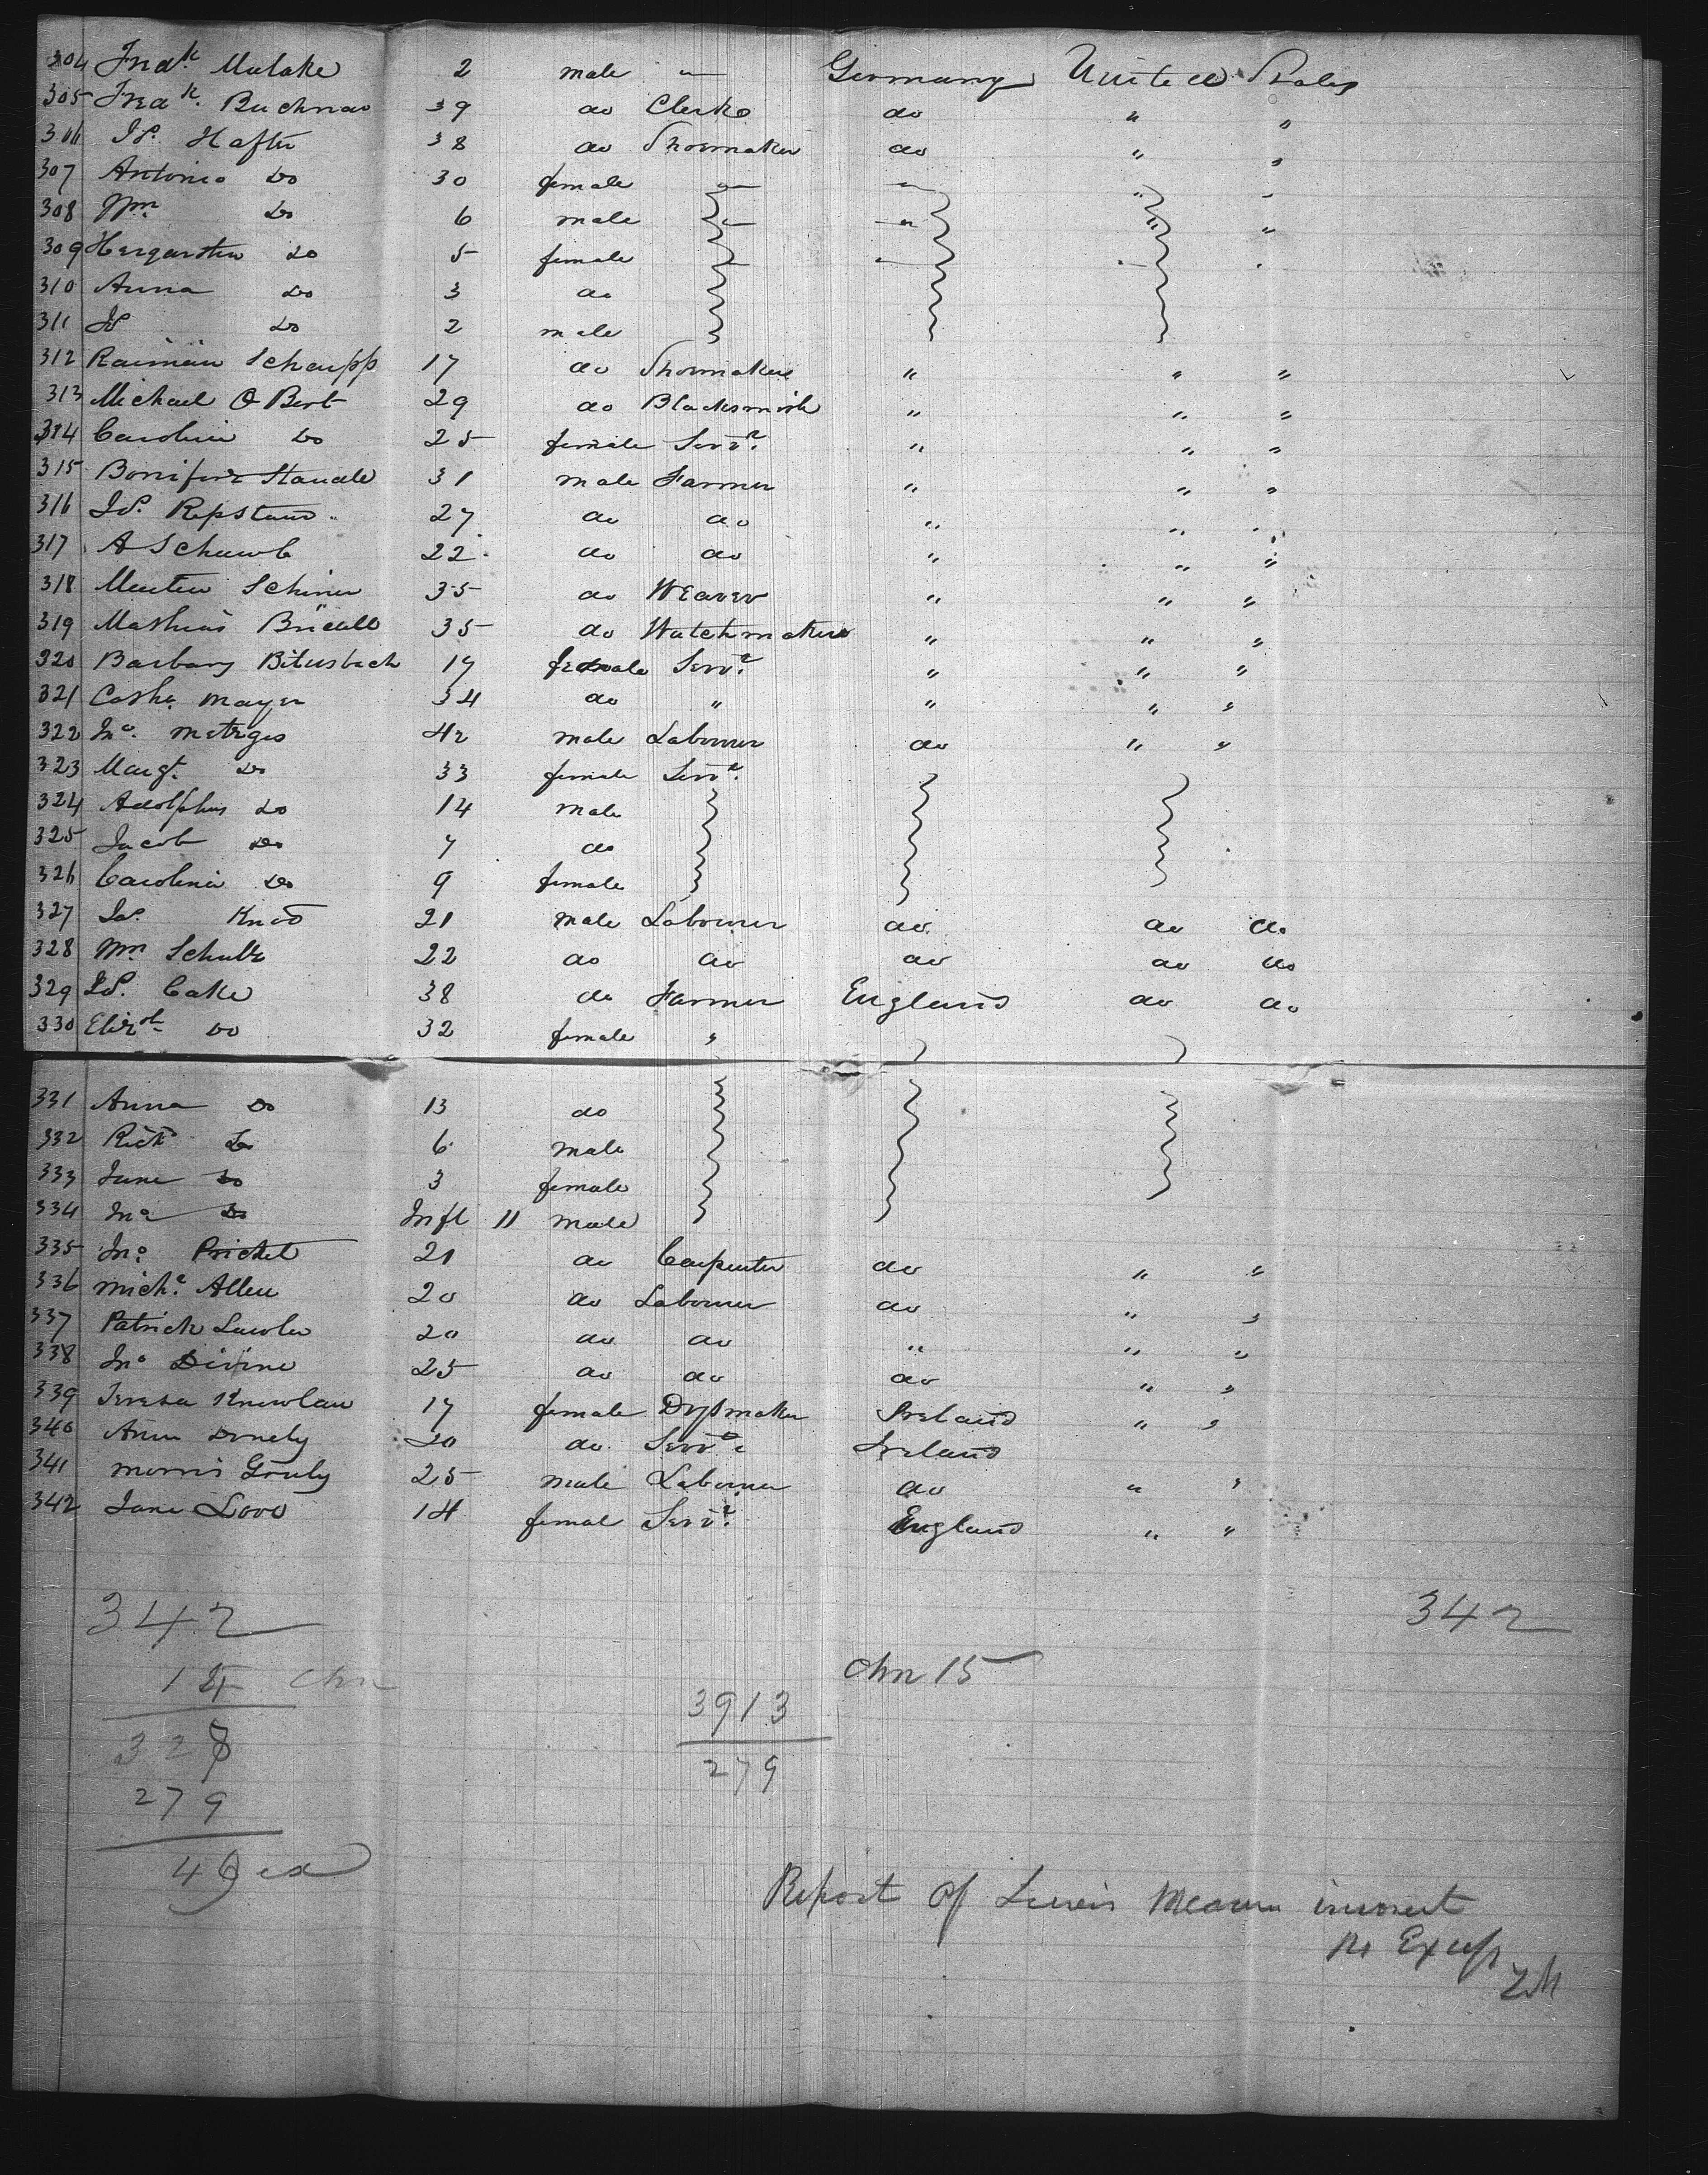 304 Fredk Malake 2 male — Germany United States
305 Fredk. Buchnas 39 do Clerk do " "
306 Js. Hafter 38 do Shoemaker do " "
307 Antonia Do 30 female — — " -
308 Wm. Do 6 male — — " "
309 Hergarsten Do 5 female — — - -
310 Anna Do 3 do
311 Js Do 2 male
312 Raiman Schaupp 17 do Shoemaker " " "
313 Michael O Bert 29 do Blacksmith " " "
314 Carolina Do 25 female Servt. " " "
315 Bonifor Standle 31 male Farmer " " "
316 Js. Repstans 27 do do " " "
317 A Schawb 22 do do " " "
318 Martin Schirier 35 do Weaver " " "
319 Mathias Bridell 35 do Watchmaker " " "
320 Barbary Bitusbach 17 female Servt. " " "
321 Cathe. Mayer 34 do " " " "
322 Jno. Metzges 42 male Labourer do " "
323 Margt. Do 33 female Servt.
324 Adolphus Do 14 male
325 Jacob Do 7 do
326 Carolina Do 9 female
327 Js. Knod 21 male Labourer do do do
328 Wm Schultz 22 do do do do do
329 Js. Cake 38 do Farmer England do do
330 Elizth Do 32 female "
331 Anna Do 13 do
332 Richd Do 6 male
333 Jane Do 3 female
334 Jno Do Inft 11 male
335 Jno. Prichet 21 do Carpenter do " "
336 Michl. Allen 20 do Labourer do " "
337 Patrick Lawler 20 do do " " "
338 Jno Divine 25 do do do " "
339 Teresa Knowlan 17 female Drssmaker Ireland " "
340 Ann Donely 20 do Servt. Ireland
341 Morris Gouly 25 male Labourer do " "
342 Jane Lovo 14 femal Servt. England " "
342 342
15 chn chn 15
327 3913
279 279
49 ex
Report of Lewis
No Excess